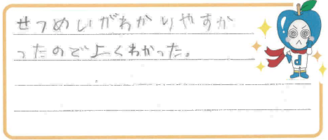 せつめいがわかりやすか
ったのでよくわかった。